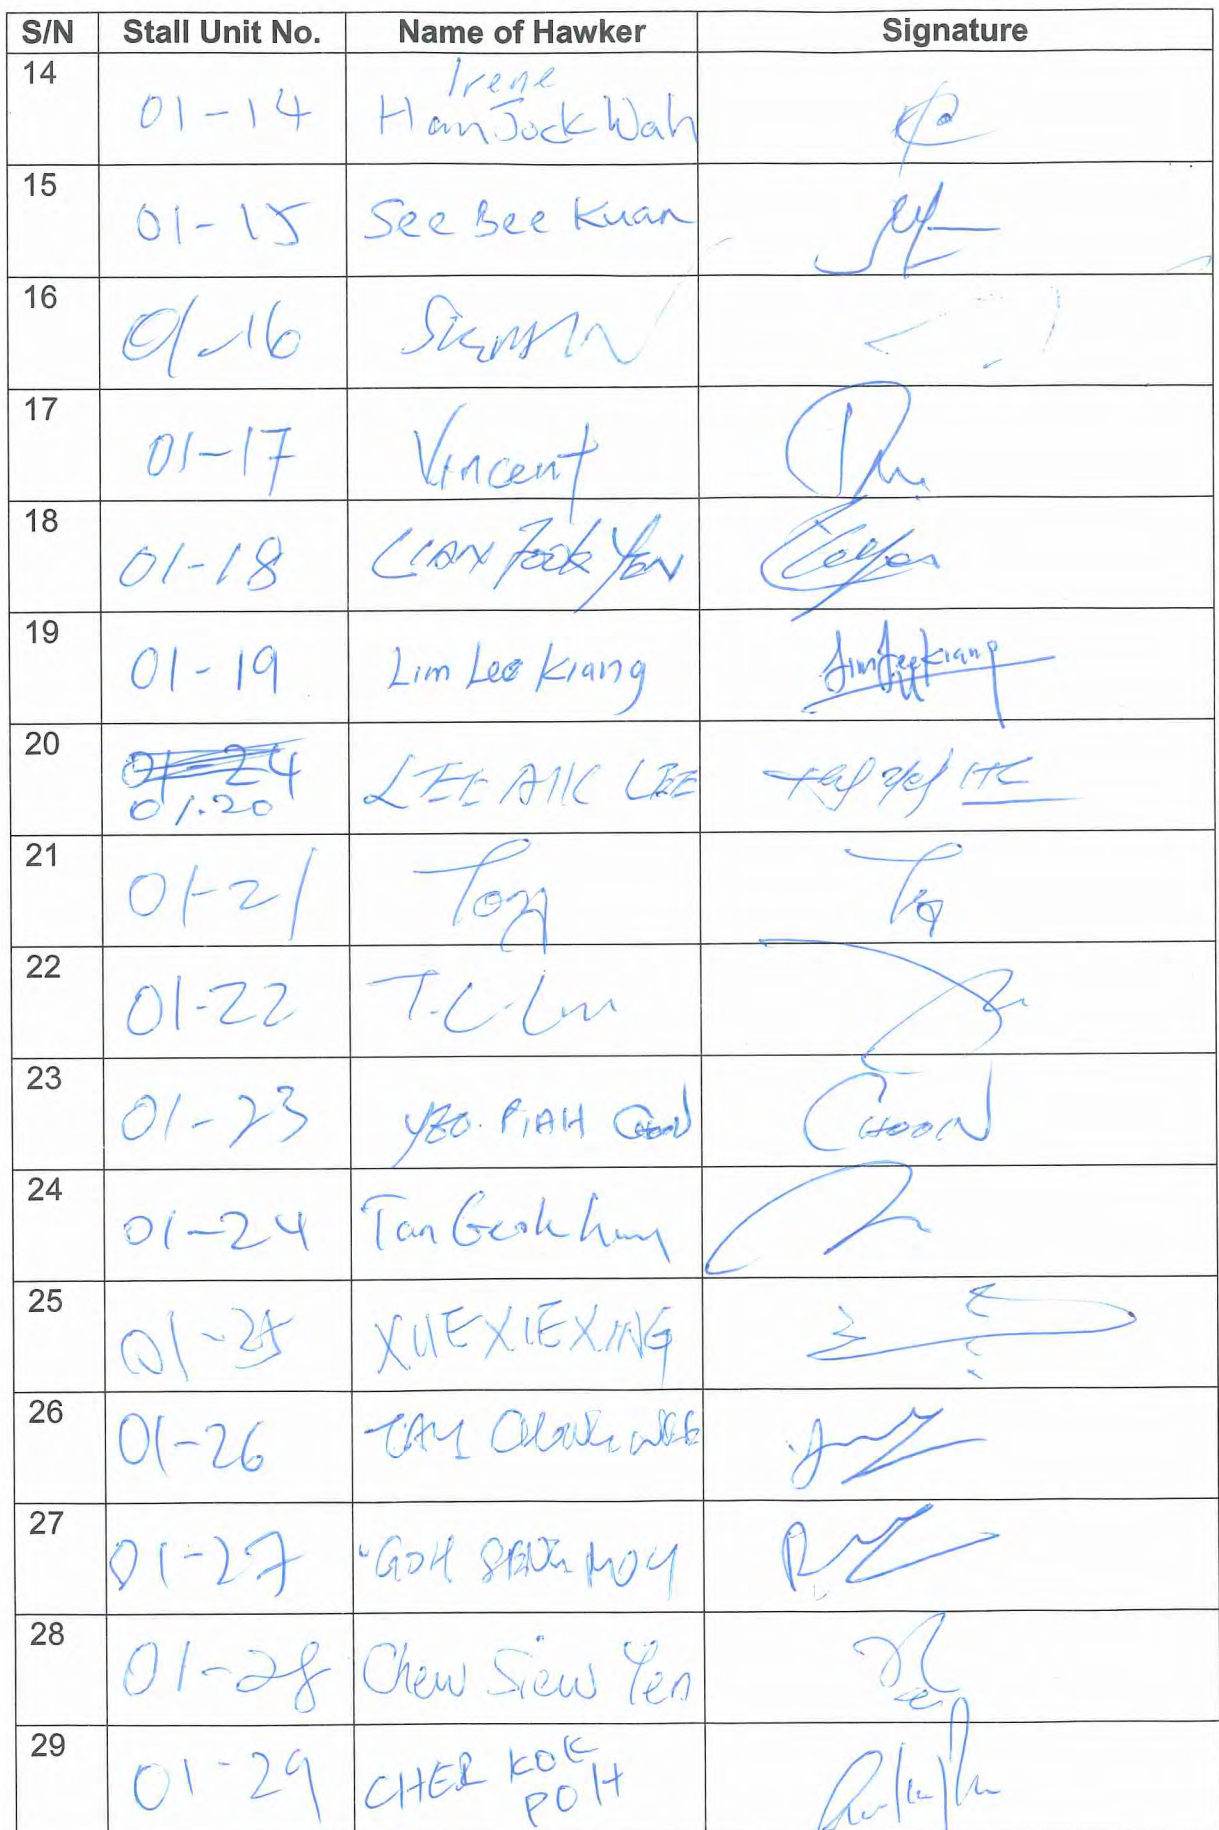 S/N Stall Unit No. Name of Hawker Signature
14 01-14 Irene
Ham Jock Wah
15 01-15 See Bee Kuan
16 01-16
17 01-17 Vincent
18 01-18 LIAN FOOK YEN
19 01-19 Lim Lee Kiang Lim Lee Kiang
20 01-24
01.20 LEE AIK LEE
21 01-21 Tony
22 01-22 T.C. Lim
23 01-23 YEO PIAH CHOON CHOON
24 01-24 Tan Geok
25 01-25 XUEXIEXING
26 01-26 TAY
27 01-27 GOH SENG MOY
28 01-28 Chew Siew Yen
29 01-29 CHER KOK
POH